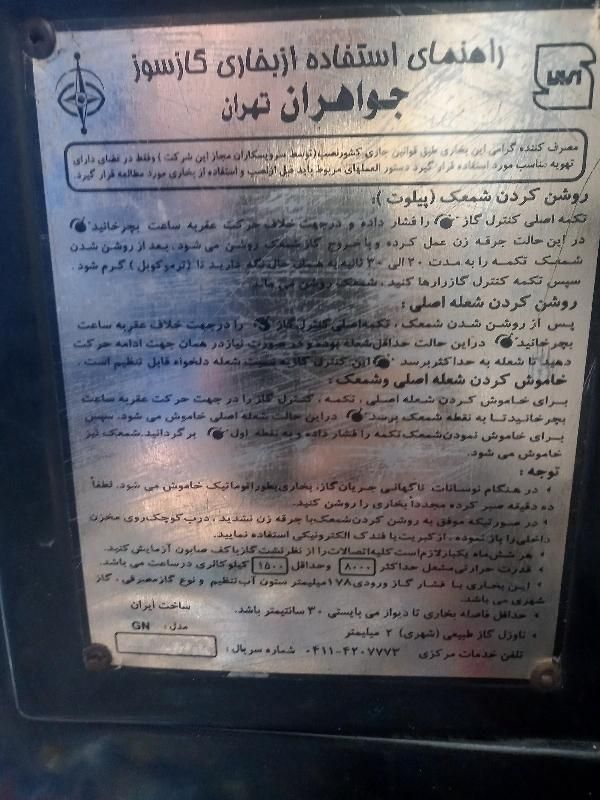 راهنمای استفاده از بخاری گازسوز
جواهران تهران
مصرف کننده گرامی این بخاری طبق قوانین جاری کشور نصب (توسط سرویسکاران مجاز این شرکت) وفقط در فضای دارای
تهویه مناسب مورد استفاده قرار گیرد دستور العملهای مربوط باید قبل از نصب و استفاده از بخاری مورد مطالعه قرار گیرد.
روشن کردن شمعک (پیلوت):
تکمه اصلی کنترل گاز را فشار داده و درجهت خلاف حرکت عقربه ساعت بچرخانید.
در این حالت جرقه زن عمل کرده و با خروج گاز شمعک روشن می شود. بعد از روشن شدن
شمعک تکمه را به مدت ۲۰ الی ۳۰ ثانیه به همان حال نگه دارید تا (ترموکوبل) گرم شود.
سپس تکمه کنترل گاز را رها کنید، شمعک روشن می ماند.
روشن کردن شعله اصلی:
پس از روشن شدن شمعک، تکمه اصلی کنترل گاز را درجهت خلاف عقربه ساعت
بچرخانید دراین حالت حداقل شعله بوده و در صورت نیاز در همان جهت ادامه حرکت
دهید تا شعله به حداکثر برسد این کنترل گاز به نسبت شعله دلخواه قابل تنظیم است.
خاموش کردن شعله اصلی وشمعک:
برای خاموش کردن شعله اصلی، تکمه، کنترل گاز را در جهت حرکت عقربه ساعت
بچرخانید تا به نقطه شمعک برسد دراین حالت شعله اصلی خاموش می شود. سپس
برای خاموش نمودن شمعک تکمه را فشار داده و به نقطه اول برگردانید. شمعک نیز
خاموش می شود.
توجه:
در هنگام نوسانات ناگهانی جریان گاز، بخاری بطور اتوماتیک خاموش می شود. لطفاً
ده دقیقه صبر کرده مجدداً بخاری را روشن کنید.
در صورتیکه موفق به روشن کردن شمعک با جرقه زن نشدید، درب کوچک روی مخزن
داخلی را باز نموده، از کبریت یا فندک الکترونیکی استفاده نمایید.
هر شش ماه یکبار لازم است کلیه اتصالات را از نظر نشت گاز با کف صابون آزمایش کنید.
قدرت حرارتی مشعل حداکثر ۸۰۰۰ وحداقل ۱۵۰۰ کیلو کالری در ساعت می باشد.
این بخاری با فشار گاز ورودی ۱۷۸ میلیمتر ستون آب تنظیم و نوع گاز مصرفی، گاز
شهری می باشد.
حداقل فاصله بخاری تا دیوار می بایستی ۳۰ سانتیمتر باشد. ساخت ایران
ناوزل گاز طبیعی (شهری) ۲ میلیمتر مدل: GN
تلفن خدمات مرکزی ۴۲۰۷۷۷۳-۰۴۱۱ شماره سریال: